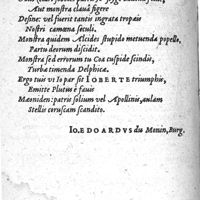 Aut monstra clauâ figere
Desine: vel fuerit tantis ingrata tropæis
Nostri camœna seculi.
Monstra quidem Alcides stupido metuenda popello,
Partu deorum discidit.
Monstra sed errorum tu Coa cuspide scindis,
Turba timenda Delphicæ.
Ergo tuis vt Io par sit IOBERTE triumphis,
Emitte Plutus è fauis
Mæoniden: patris solium vel Apollinis, aulam
Stellis coruscam scandito.
Io. EDOARDVS du Monin, Burg.